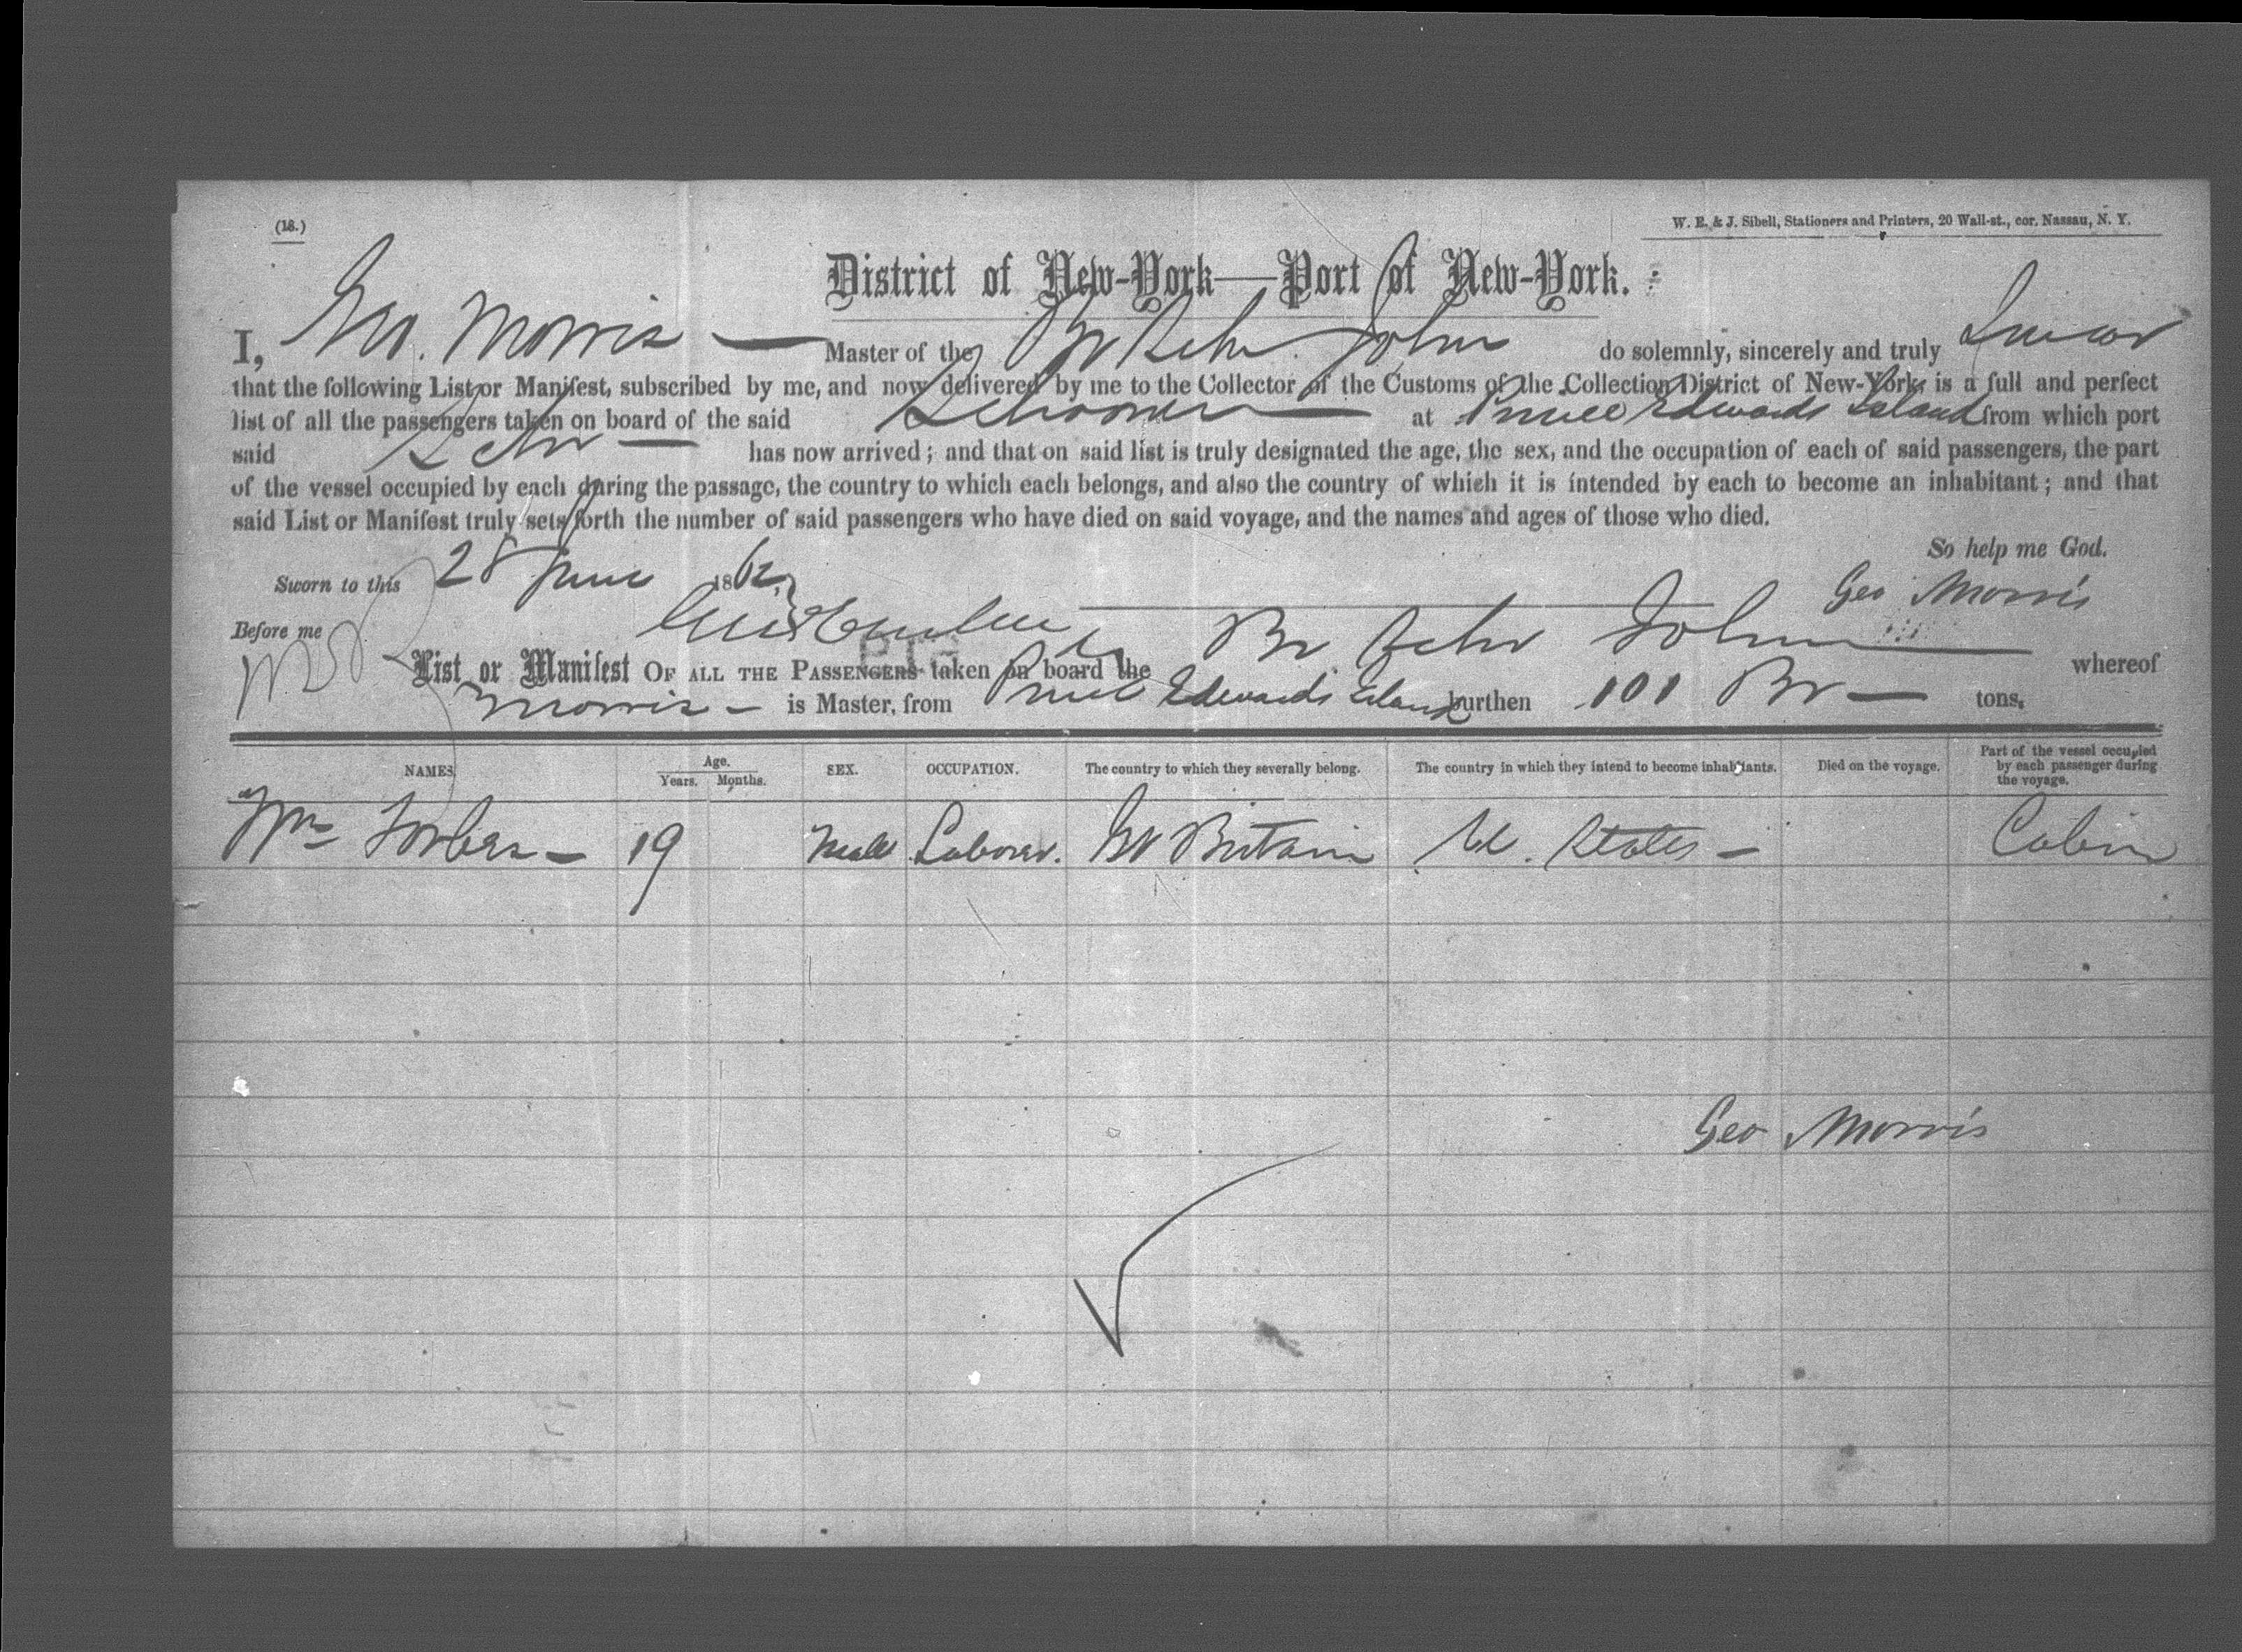 (18.)
W. E. & J. Sibell, Stationers and Printers, 20 Wall-st., cor. Nassau, N. Y.
District of New-York—Port of New-York.
I, Geo. Morris — Master of the Br Schr. John do solemnly, sincerely and truly Swear
that the following List or Manifest, subscribed by me, and now delivered by me to the Collector of the Customs of the Collection District of New-York, is a full and perfect
list of all the passengers taken on board of the said Schooner — at Prince Edwards Island from which port
said Schr — has now arrived; and that on said list is truly designated the age, the sex, and the occupation of each of said passengers, the part
of the vessel occupied by each during the passage, the country to which each belongs, and also the country of which it is intended by each to become an inhabitant; and that
said List or Manifest truly sets forth the number of said passengers who have died on said voyage, and the names and ages of those who died.
So help me God.
Sworn to this 28 June 1862, Geo Morris
Before me
List or Manifest OF ALL THE PASSENGERS taken on board the Br Schr John — whereof
Morris – is Master, from Prince Edwards Island burthen 101 Br — tons.
NAMES. Age. Years. Months. SEX. OCCUPATION. The country to which they severally belong. The country in which they intend to become inhabitants. Died on the voyage. Part of the vessel occupied by each passenger during the voyage.
Wm Forbes – 19 Male Laborer. Gr Britain U. States – Cabin
Geo Morris